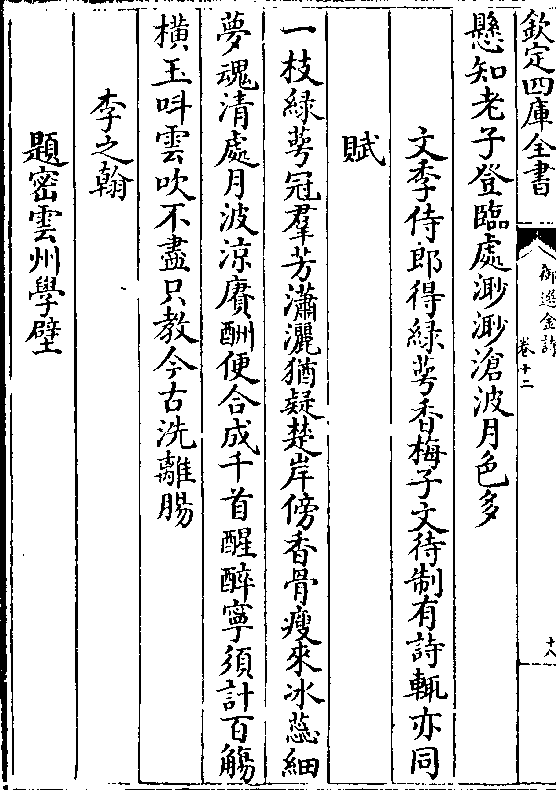 欽定四庫全書
御選金詩
卷十二
十八
懸知老子登臨處渺渺滄波月色多
文季侍郎得綠萼香梅子文待制有詩輒亦同
賦
一枝綠萼冠羣芳瀟灑猶疑楚岸傍香骨瘦來冰蕊細
夢魂清處月波涼賡酬便合成千首醒醉寧須計百觴
橫玉叫雲吹不盡只教今古洗離腸
李之翰
題密雲州學壁